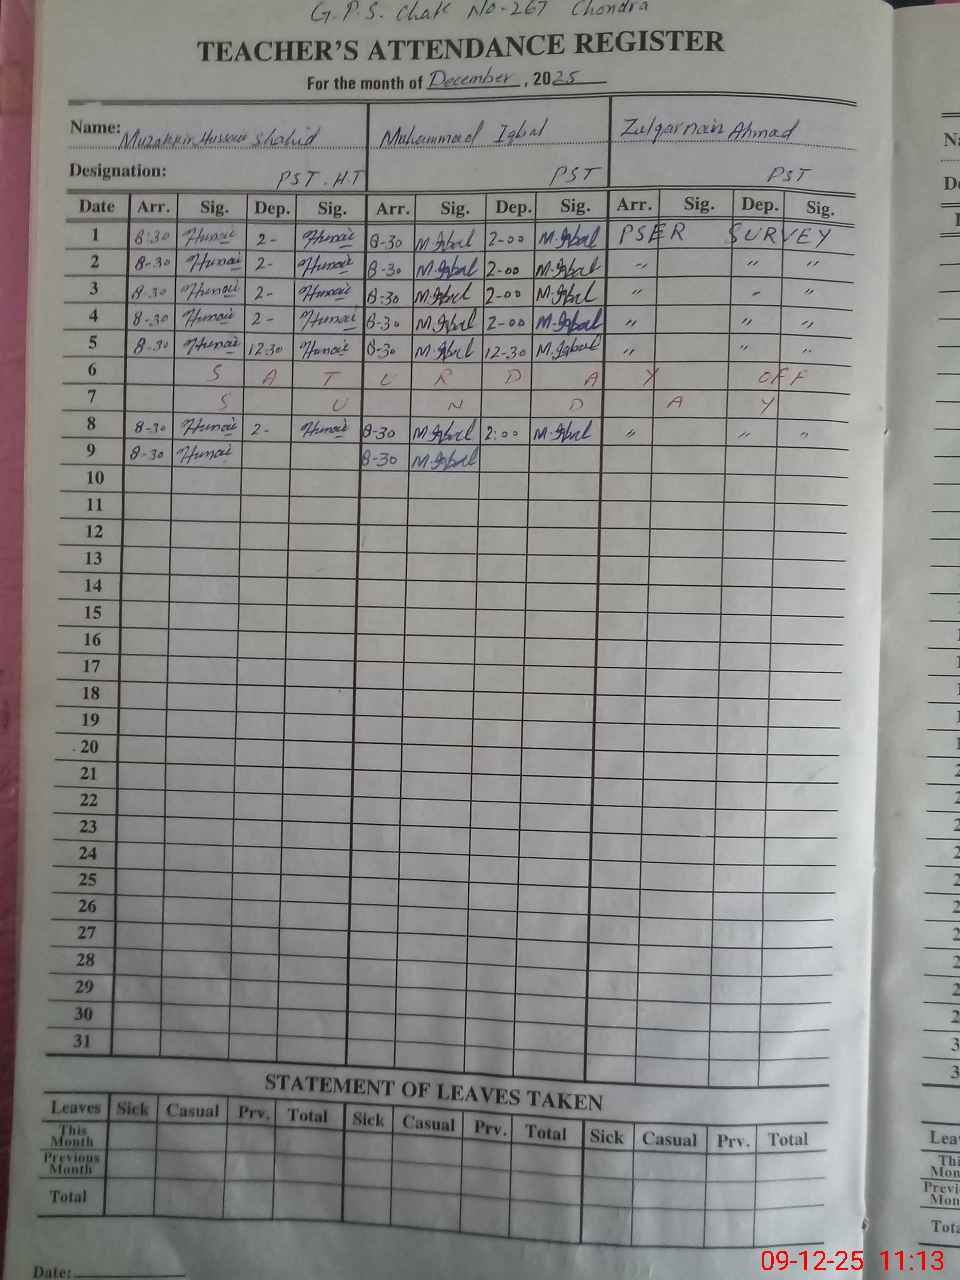 G.P.S. Chak No-267 Chondra
TEACHER'S ATTENDANCE REGISTER
For the month of December, 2025
Name: Muzakkir Hussain Shahid Muhammad Iqbal Zulqarnain Ahmad
Designation: PST.HT PST PST
Date Arr. Sig. Dep. Sig. Arr. Sig. Dep. Sig. Arr. Sig. Dep. Sig.
1 8:30 2- 8-30 M.Iqbal 2-00 M.Iqbal PSER SURVEY
2 8-30 2- 8-30 M.Iqbal 2-00 M.Iqbal " " "
3 8-30 2- 8:30 M.Iqbal 2-00 M.Iqbal " " "
4 8-30 2- 8-30 M.Iqbal 2-00 M.Iqbal " " "
5 8-30 12-30 8-30 M.Iqbal 12-30 M.Iqbal " " "
6 S A T U R D A Y OFF
7 S U N D A Y
8 8-30 2- 8-30 M.Iqbal 2:00 M.Iqbal " " "
9 8-30 8-30 M.Iqbal
10
11
12
13
14
15
16
17
18
19
20
21
22
23
24
25
26
27
28
29
30
31
STATEMENT OF LEAVES TAKEN
Leaves Sick Casual Prv. Total Sick Casual Prv. Total Sick Casual Prv. Total
This Month
Previous Month
Total
Date:
09-12-25 11:13